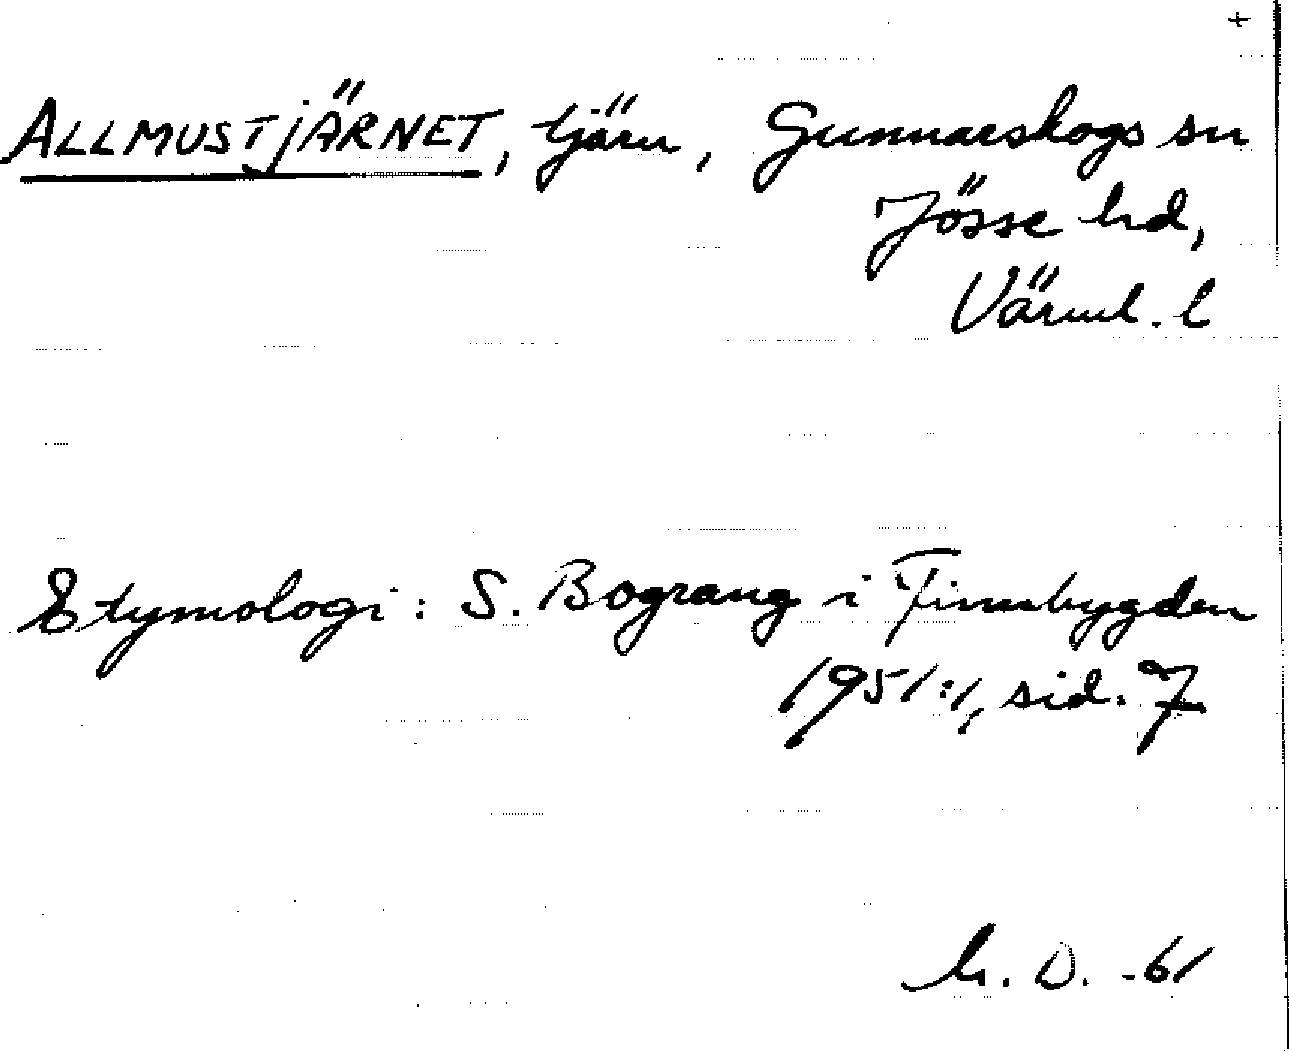 +
ALLMUSTJÄRNET, tjärn, Gunnarskogs sn
Jösse hd,
Värml. l
Etymologi: S. Bograng i Finnbygden
1951:1, sid. 7
h. D. -61